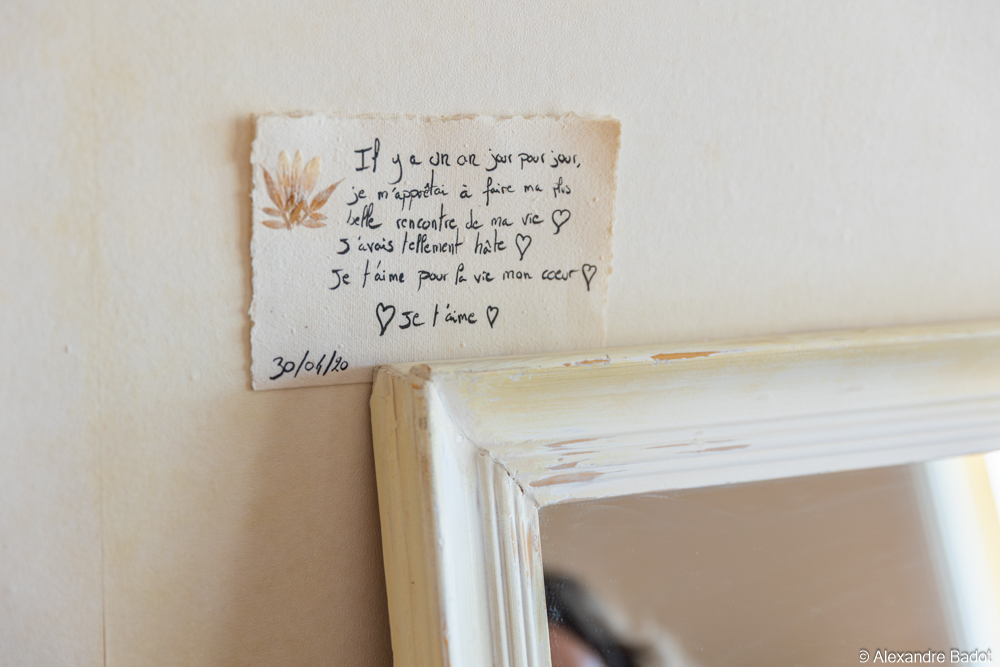 Il y a un an jour pour jour,
je m'apprêtai à faire ma plus
belle rencontre de ma vie ♡
J'avais tellement hâte ♡
Je t'aime pour la vie mon coeur ♡
♡ Je t'aime ♡
30/04/20
© Alexandre Badot